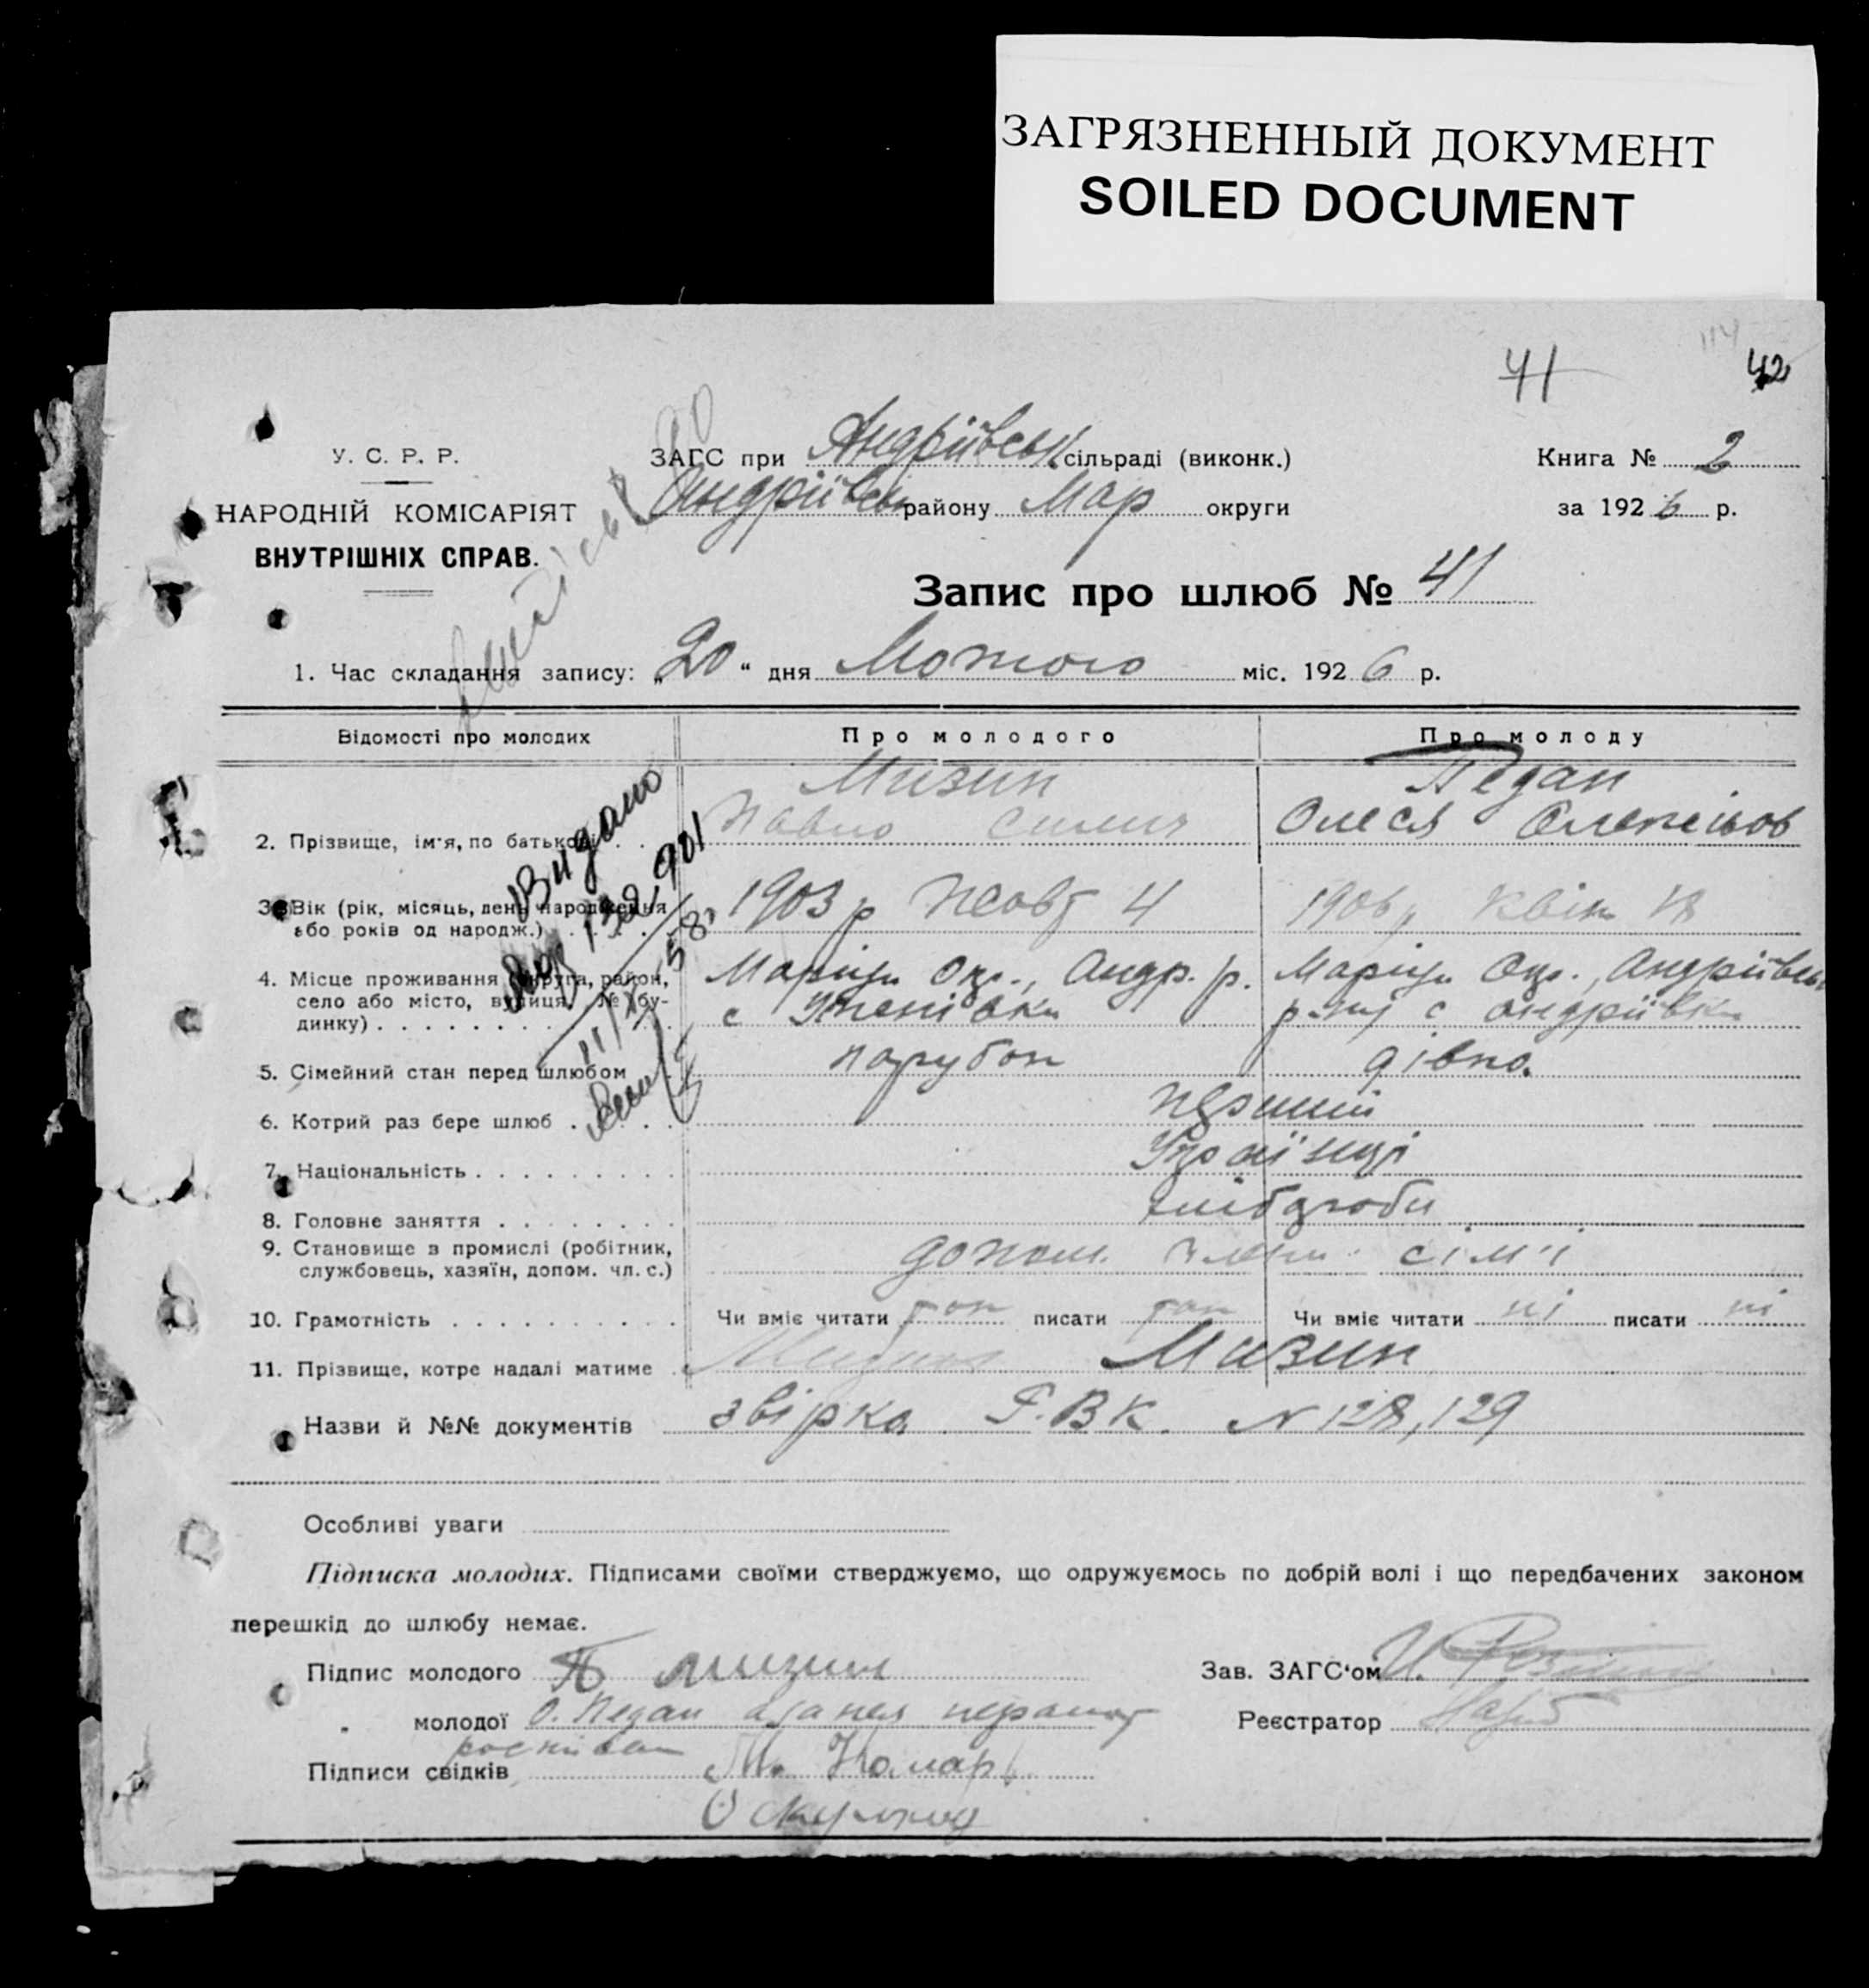 ЗАГРЯЗНЕННЫЙ ДОКУМЕНТ
SOILED DOCUMENT
41
42
У. С. Р. Р.
НАРОДНІЙ КОМІСАРІЯТ
ВНУТРІШНІХ СПРАВ.
ЗАГС при Андріївськ сільраді (виконк.)
Андріївськ району Мар округи
Книга № 2
за 1926 р.
Запис про шлюб № 41
1. Час складання запису: „20“ дня Лютого міс. 1926 р.
Відомості про молодих
Про молодого
Про молоду
Мизин
Педан
2. Прізвище, ім'я, по батькові . .
Павло
Олеся
3. Вік (рік, місяць, день народження
або років од народж.) . . . .
1903 р Жовт 4
1906 р Квіт 18
4. Місце проживання (округа, район,
село або місто, вулиця, № бу-
динку) . . . . . . . .
Маріуп Окр., Андр. р.
с
Маріуп Окр., Андріївськ
с Андріївка
5. Сімейний стан перед шлюбом
парубок
дівка
6. Котрий раз бере шлюб . . . .
перший
7. Національність . . . . . . . . .
Українці
8. Головне заняття . . . . . . . .
хлібороби
9. Становище в промислі (робітник,
службовець, хазяїн, допом. чл. с.)
допом. член сім'ї
10. Грамотність . . . . . . . . . .
Чи вміє читати так писати так
Чи вміє читати ні писати ні
11. Прізвище, котре надалі матиме
Мизин
Назви й №№ документів звірка Р.В.К. N 128, 129
Видано
Особливі уваги
Підписка молодих. Підписами своїми стверджуємо, що одружуємось по добрій волі і що передбачених законом
перешкід до шлюбу немає.
Підпис молодого П Мизин
Зав. ЗАГС'ом
„ молодої О. Педан
Реєстратор
Підписи свідків